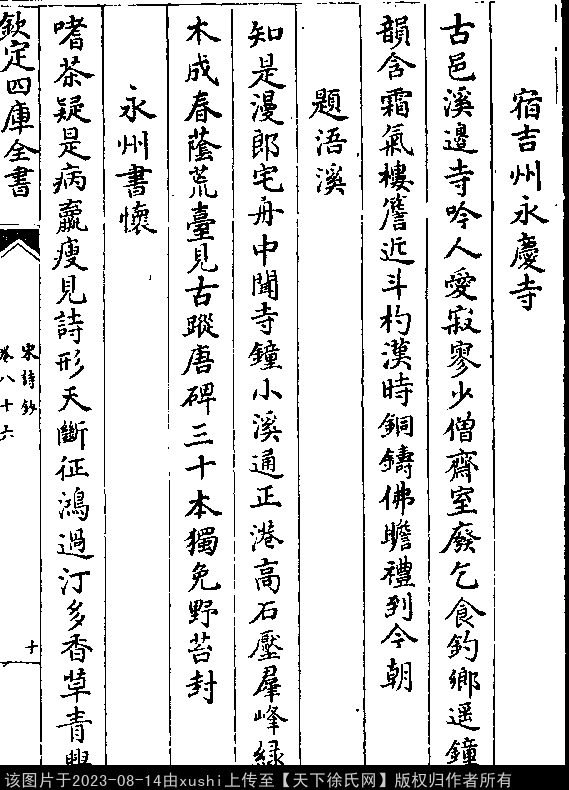 宿吉州永慶寺
古邑溪邊寺吟人愛寂寥少僧齋室廢乞食釣鄉遥鐘
韻含霜氣樓簷近斗杓漢時銅鑄佛瞻禮到今朝
題浯溪
知是漫郎宅舟中聞寺鐘小溪通正港高石壓羣峰綠
木成春蔭荒臺見古蹤唐碑三十本獨免野苔封
永州書懷
嗜茶疑是病羸瘦見詩形天斷征鴻過汀多香草青
欽定四庫全書
宋詩鈔
卷八十六
十
该图片于2023-08-14由xushi上传至【天下徐氏网】版权归作者所有